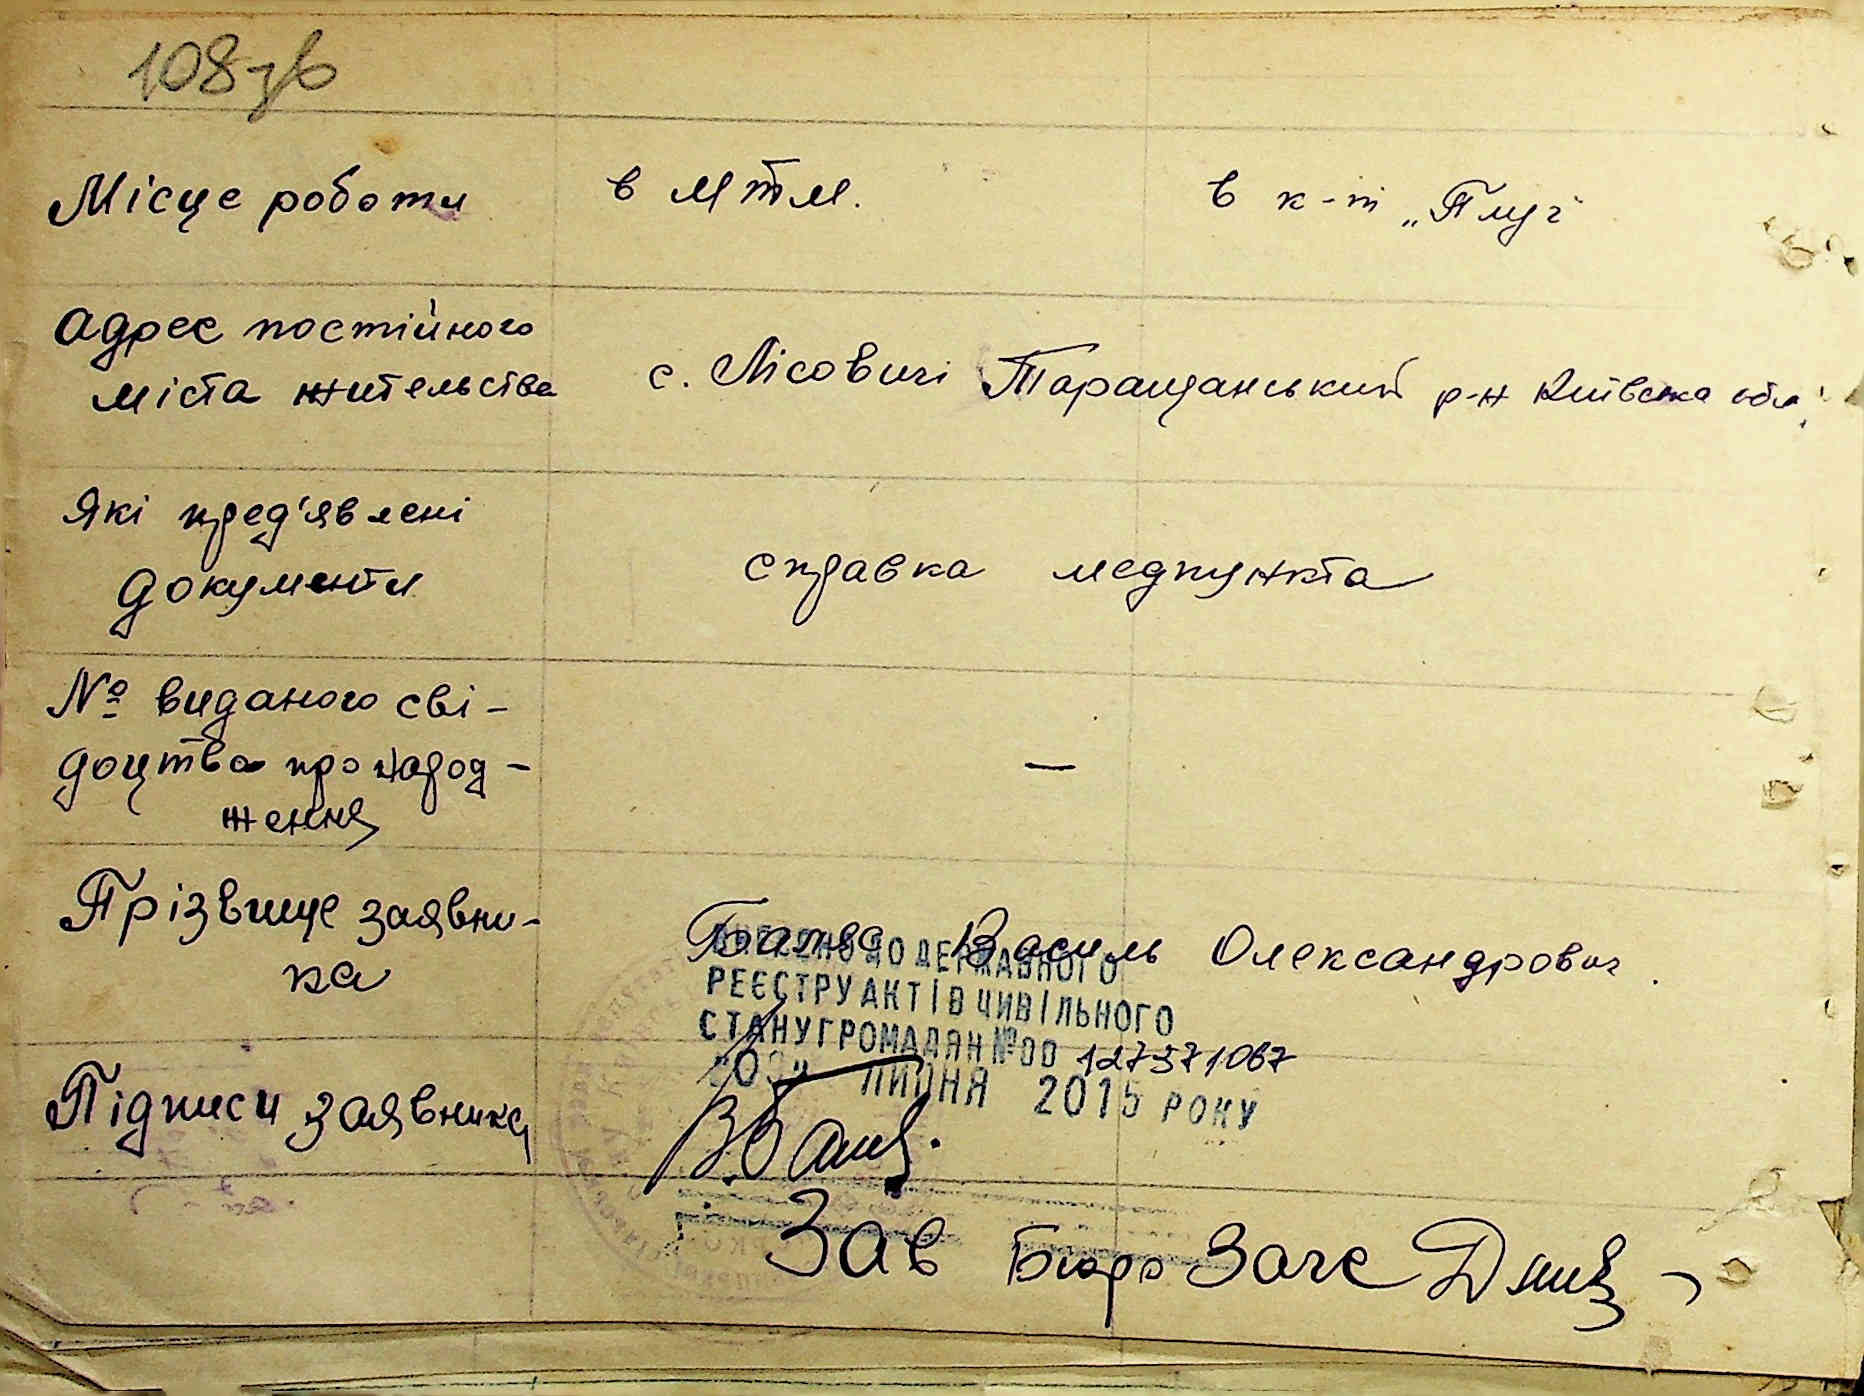 108зв
Місце роботи в МТМ. в к-т „Плуг"
Адрес постійного
міста жительства с. Лісовичі Таращанський р-н Київська обл.
Які пред'явлені
документи справка медпункта
№ виданого сві-
доцтва про народ- —
ження
Прізвище заявни-
ка Василь Олександрович.
ВНЕСЕНО ДО ДЕРЖАВНОГО
РЕЄСТРУ АКТІВ ЦИВІЛЬНОГО
СТАНУ ГРОМАДЯН №00 127371067
ЛИПНЯ 2015 РОКУ
Підписи заявника
Зав Бюро Загс